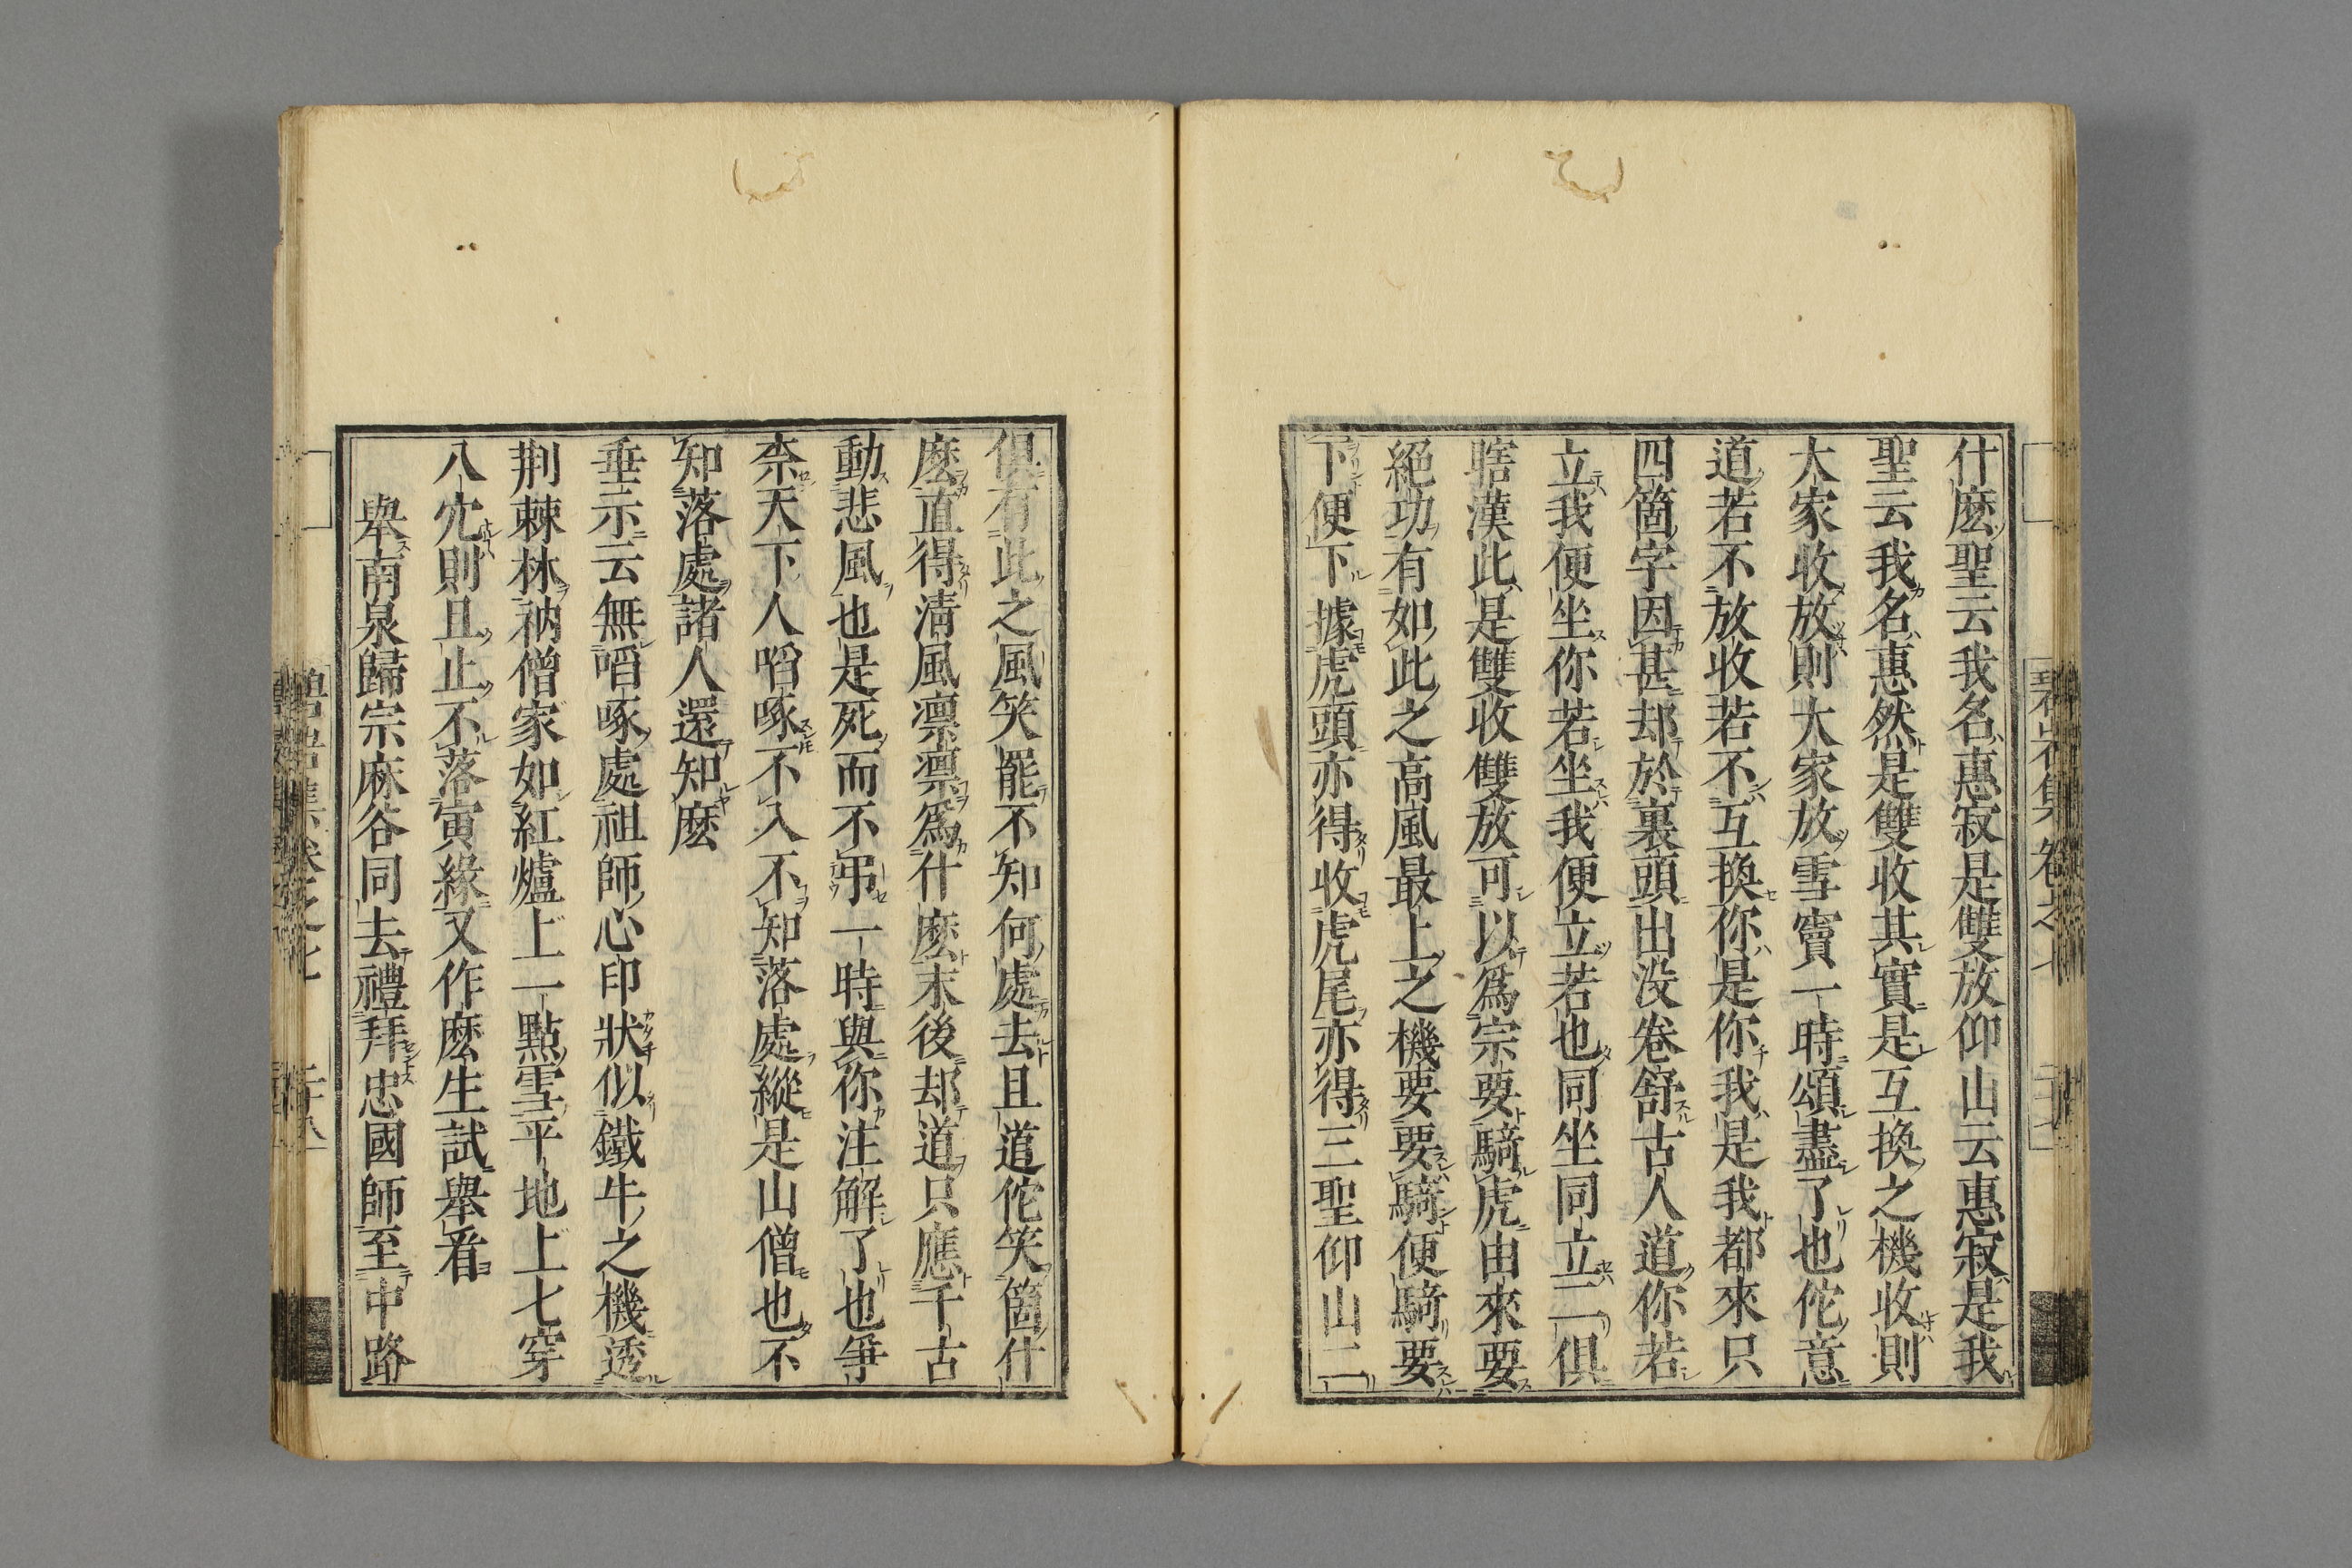 什麽聖云我名惠寂是雙放仰山云惠寂是我
聖云我名惠然是雙收其實是互換之機收則
大家收放則大家放雪竇一時頌盡了也佗意
道若不放收若不互換你是你我是我都來只
四箇字因甚却於裏頭出没卷舒古人道你若
立我便坐你若坐我便立若也同坐同立二俱
瞎漢此是雙收雙放可以爲宗要騎虎由來要
絕功有如此之高風最上之機要要騎便騎要
下便下據虎頭亦得收虎尾亦得三聖仰山二
俱有此之風笑罷不知何處去且道佗笑箇什
麽直得清風凛凛爲什麽末後却道只應千古
動悲風也是死而不弔一時與你注解了也爭
柰天下人啗啄不入不知落處縱是山僧也不
知落處諸人還知麽
垂示云無啗啄處祖師心印狀似鐵牛之機透
荆棘林衲僧家如紅爐上一點雪平地上七穿
八穴則且止不落寅緣又作麽生試舉看
舉南泉歸宗麻谷同去禮拜忠國師至中路